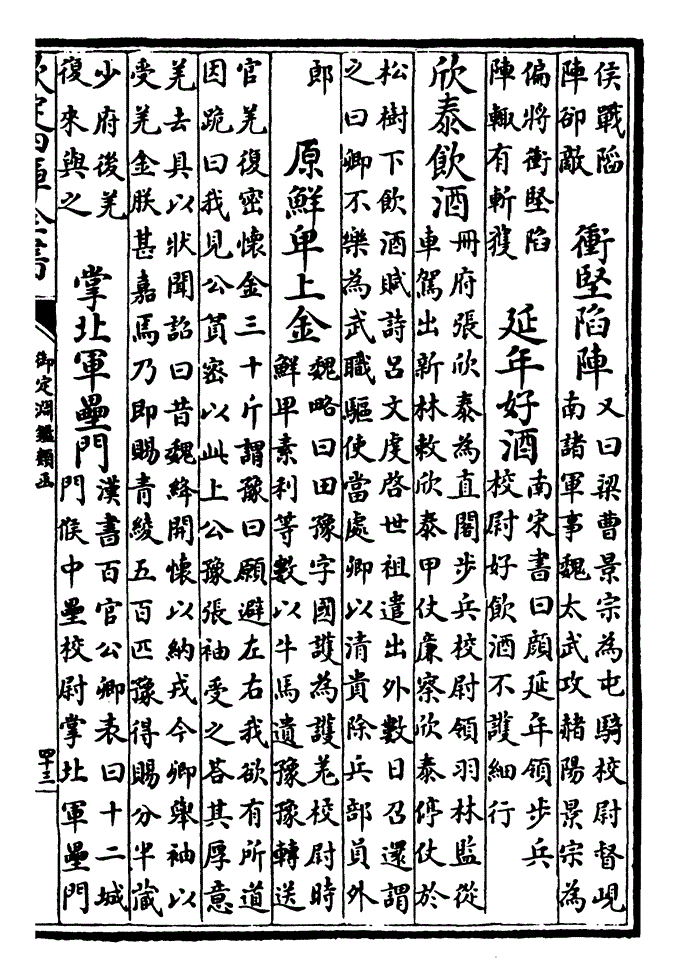 侯戰蹈
陣卻敵
衝堅陷陣
又曰梁曹景宗為屯騎校尉督峴
南諸軍事魏太武攻赭陽景宗為
偏將衝堅陷
陣輙有斬獲
延年好酒
南宋書曰顔延年領步兵
校尉好飲酒不護細行
欣泰飲酒
冊府張欣泰為直閣步兵校尉領羽林監從
車駕出新林敕欣泰甲仗廉察欣泰停仗於
松樹下飲酒賦詩吕文度啓世祖遣出外數日召還謂
之曰卿不樂為武職驅使當處卿以清貴除兵部員外
郎
原鮮卑上金
魏略曰田豫字國護為護羌校尉時
鮮卑素利等數以牛馬遺豫豫轉送
官羌復密懷金三十斤謂豫曰願避左右我欲有所道
因跪曰我見公貧密以此上公豫張袖受之荅其厚意
羌去具以狀聞詔曰昔魏絳開懷以納戎今卿舉袖以
受羌金朕甚嘉焉乃即賜青綾五百匹豫得賜分半藏
少府後羌
復來與之
掌北軍壘門
漢書百官公卿表曰十二城
門候中壘校尉掌北軍壘門
欽定四庫全書
御定淵鑑類函
四十三